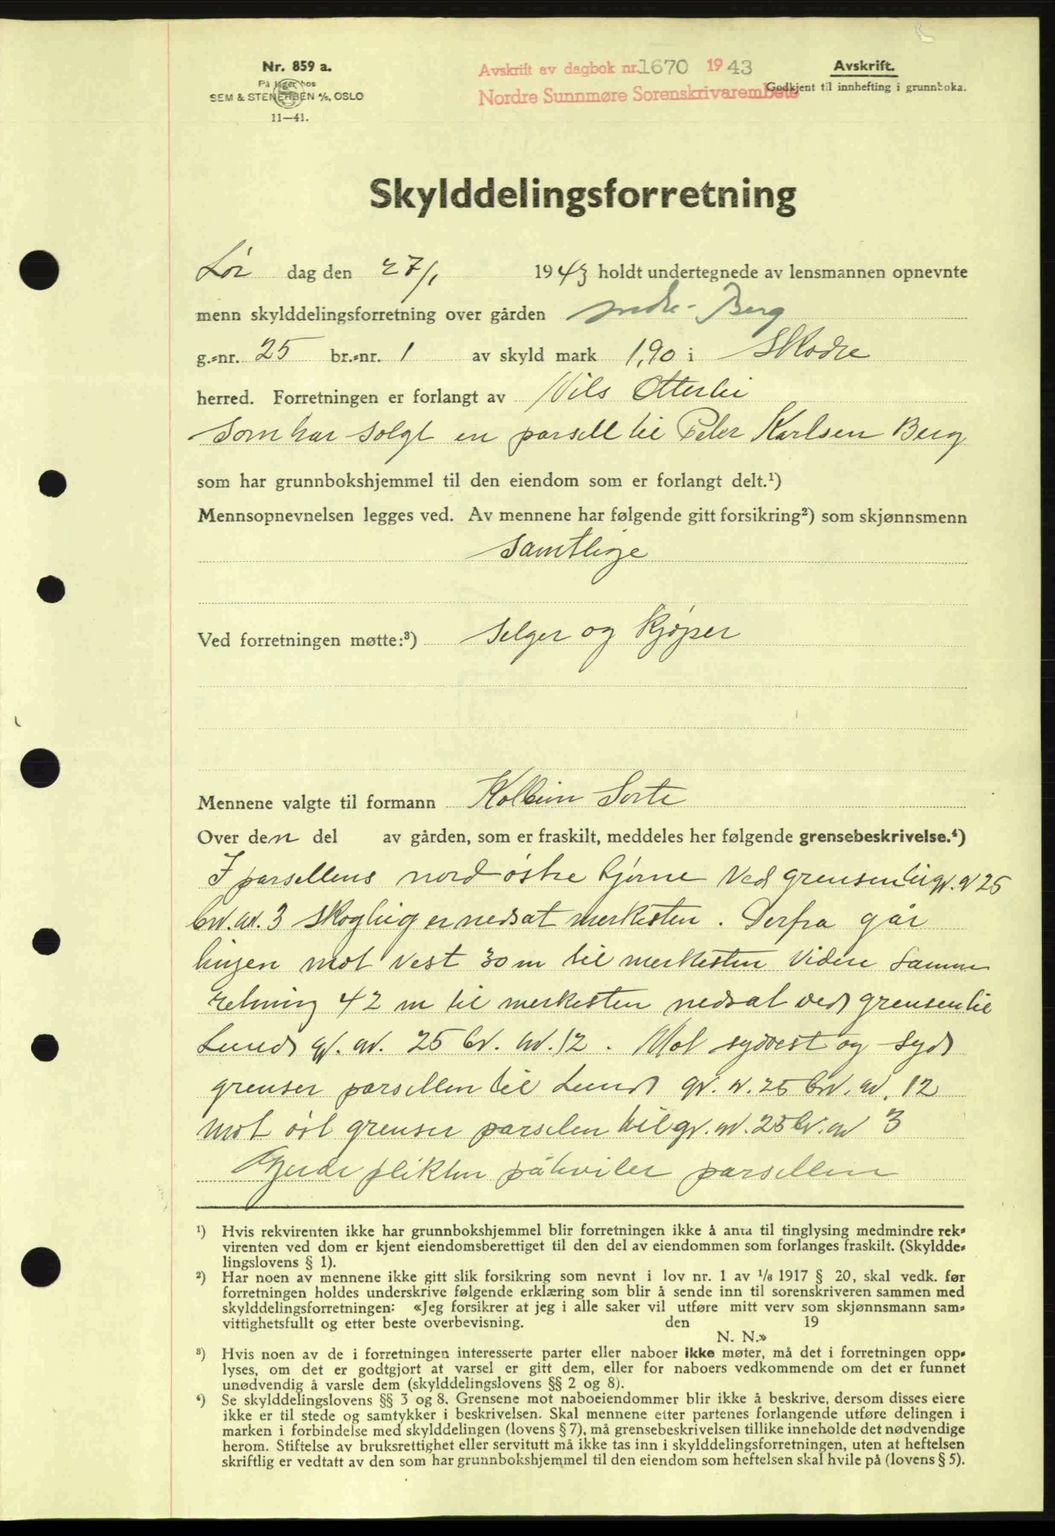 Nr. 859 a.
På lager hos
SEM & STENERSEN A/S, OSLO
11—41.
Avskrift av dagbok nr. 1670 1943
Nordre Sunnmøre Sorenskrivarembete
Avskrift.
Godkjent til innhefting i grunnboka.
Skylddelingsforretning
Lør dag den 27/1 1943 holdt undertegnede av lensmannen opnevnte
menn skylddelingsforretning over gården Indre-Berg
g.-nr. 25 br.-nr. 1 av skyld mark 1,90 i Skodje
herred. Forretningen er forlangt av Nils Otterlei
som har solgt en parsell til Peter Karlsen Berg
som har grunnbokshjemmel til den eiendom som er forlangt delt.¹)
Mennsopnevnelsen legges ved. Av mennene har følgende gitt forsikring²) som skjønnsmenn
samtlige
Ved forretningen møtte:³) Selger og kjøper
Mennene valgte til formann Kolbein Sorte
Over den del av gården, som er fraskilt, meddeles her følgende grensebeskrivelse.⁴)
I parsellens nord østre hjørne ved grensen til gr. nr 25
br. nr. 3 Skoglug er nedsat merkesten. Derfra går
linjen mot vest 30 m til merkesten videre samme
retning 42 m til merkesten nedsat ved grensen til
Lund gr. nr. 25 br. nr. 12. Mot sydvest og syd
grenser parsellen til Lund gr. nr. 25 br. nr. 12
mot øst grenser parsellen til gr. nr. 25 br. nr 3
Gjerde plikten påhviler parsellen
¹) Hvis rekvirenten ikke har grunnbokshjemmel blir forretningen ikke å anta til tinglysing medmindre rek-
virenten ved dom er kjent eiendomsberettiget til den del av eiendommen som forlanges fraskilt. (Skyldde-
lingslovens § 1).
²) Har noen av mennene ikke gitt slik forsikring som nevnt i lov nr. 1 av 1/6 1917 § 20, skal vedk. før
forretningen holdes underskrive følgende erklæring som blir å sende inn til sorenskriveren sammen med
skylddelingsforretningen: «Jeg forsikrer at jeg i alle saker vil utføre mitt verv som skjønnsmann sam-
vittighetsfullt og etter beste overbevisning. den 19
N. N.»
³) Hvis noen av de i forretningen interesserte parter eller naboer ikke møter, må det i forretningen opp-
lyses, om det er godtgjort at varsel er gitt dem, eller for naboers vedkommende om det er funnet
unødvendig å varsle dem (skylddelingslovens §§ 2 og 8).
⁴) Se skylddelingslovens §§ 3 og 8. Grensene mot naboeiendommer blir ikke å beskrive, dersom disses eiere
ikke er til stede og samtykker i beskrivelsen. Skal mennene etter partenes forlangende utføre delingen i
marken i forbindelse med skylddelingen (lovens § 7), må grensebeskrivelsen tillike inneholde det nødvendige
herom. Stiftelse av bruksrettighet eller servitutt må ikke tas inn i skylddelingsforretningen, uten at heftelsen
skriftlig er vedtatt av den som har grunnbokshjemmel til den eiendom som heftelsen skal hvile på (lovens § 5).